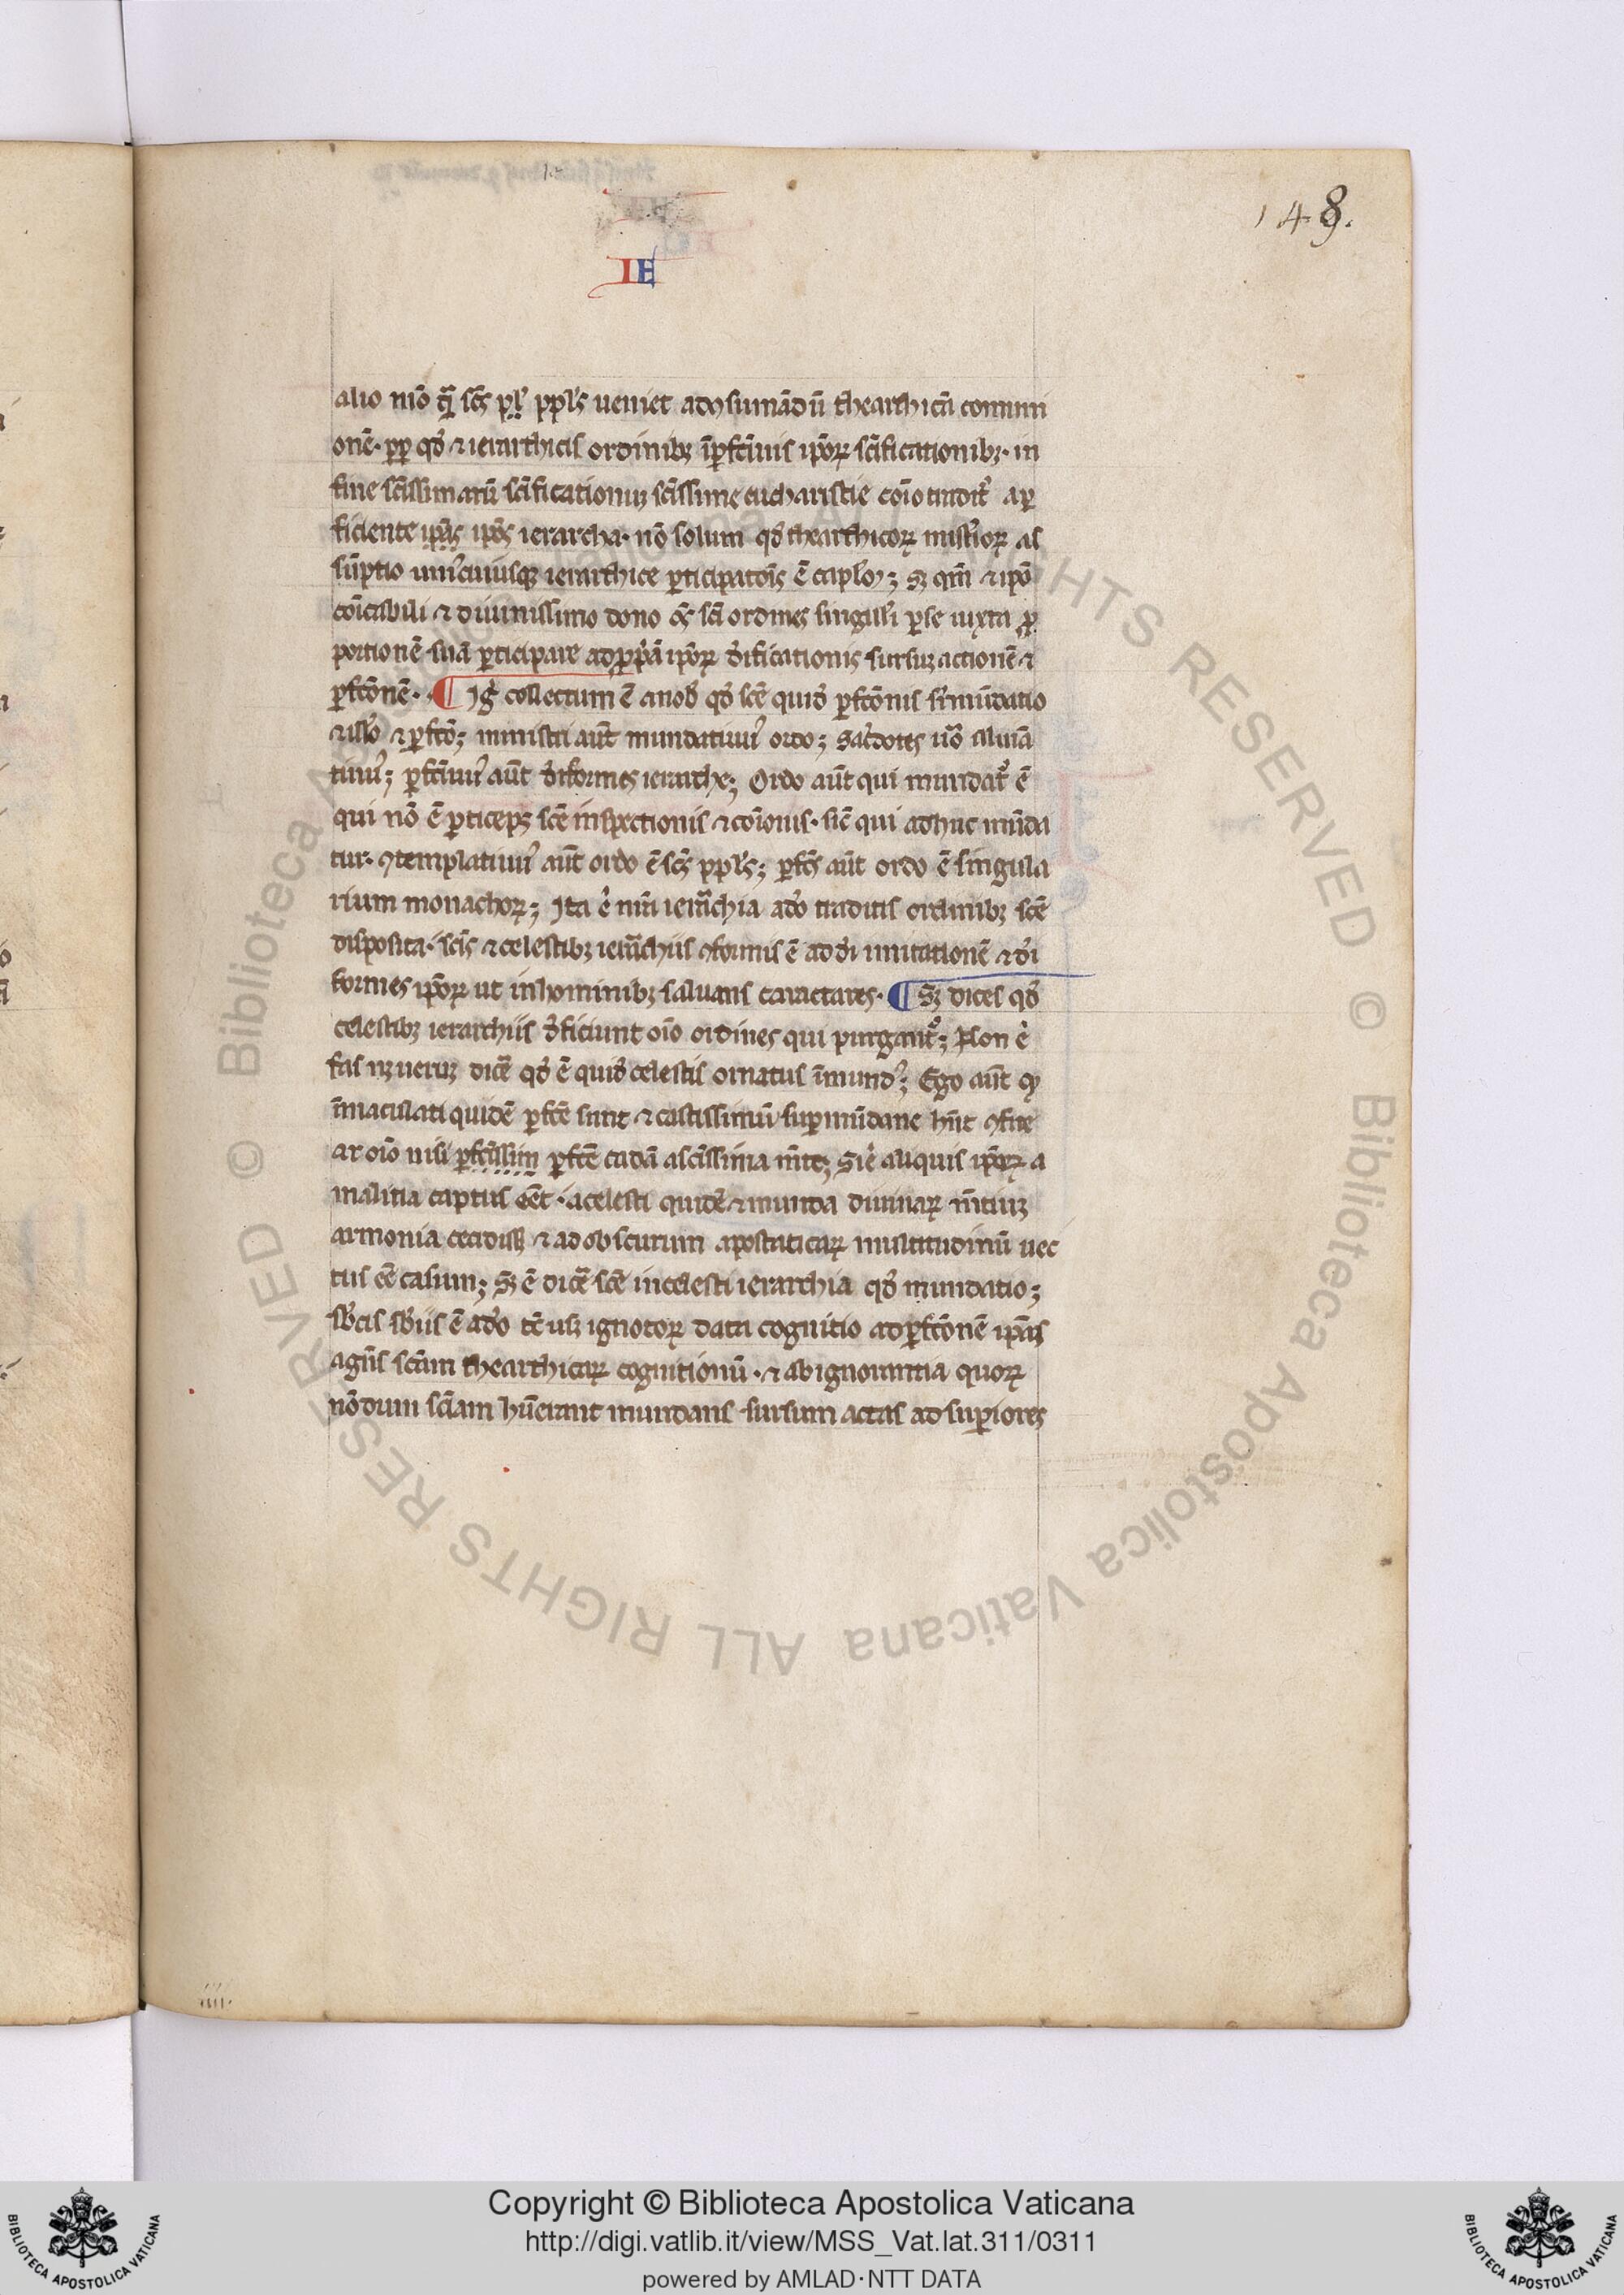 148.
IE
alio mō q̄ sc̄s pl̄ ppl̄s ueniet ad ꝯsumādū thearchicā commini
onē. pp qd̓ ⁊ ierarchicis ordinibꝫ īꝑfcīuis ip̄oꝝ sc̄ificationibꝫ. in
fine sc̄issimarū sc̄ificationuꝫ sc̄issime eucharistie cōio tradit̓ a ꝑ
ficiente ip̄as ip̄os ierarcha. nō solum qd̓ thearchicoꝝ mist̓ioꝝ as
sūptio uni᷒cuiusqꝫ ierarchice ꝑticipatōis ē ; sꝫ qm̄ ⁊ ip̄o
cōicabili ⁊ diuinissimo dono om̄s sc̄i ordines singul̓i ꝑ se iuxta ꝓ
portionē suā ꝑticipare ad ip̄oꝝ d̓ificationis sursuꝫ actionē ⁊
ꝑfcōnē. ¶ Ig̓ collectum ē a nob̓ qd̓ sc̄e quid̓ ꝑfcōnis s̄t mūdatio
⁊ ill̓o ⁊ ꝑfcō; ministri aūt mundatiuu᷒ ordo; sac̓dotes u̓o illuiā
tiuu᷒; ꝑfcīuu᷒ aūt d̓iformes ierarche; Ordo aūt qui mundat᷒ ē
qui nō ē ꝑticeps sc̄e inspectionis ⁊ cōionis. sic̄ qui adhuc mūda
tur. ꝯtemplatiuu᷒ aūt ordo ē sc̄s ppl̄s; ꝑfc̄s aūt ordo ē singula
rium monachoꝝ; Ita ē nr̄a ierarchia a d̓o traditis ordinibꝫ sc̄e
disposita. sc̄is ⁊ celestibꝫ ierarchiis ꝯformis ē ad d̓i imitationē ⁊ d̓i
formes ip̄oꝝ ut in hominibꝫ saluans caractares. ¶ Sꝫ dices qd̓
celestibꝫ ierarchiis d̓ficiunt oīo ordines qui purgant᷒; Non ē
fas nꝫ ueruꝫ dic̄e qd̓ ē quid̓ celestis ornatus īmund᷒; Ego aūt qꝫ
īmaculati quidē ꝑfc̄e sunt ⁊ castissimū suꝑmūdane hn̄t ꝯfite
ar oīo nisi ꝑfcīssim ꝑfc̄e cadā a sc̄issima mēte; Si ē aliquis ip̄oꝝ a
malitia captus eēt. a celesti quidē ⁊ munda diuinaꝝ mētiuꝫ
armonia cecidissꝫ ⁊ ad obscurum apostaticaꝝ multitudinū uec
tus eē casum; Sꝫ ē dic̄e sc̄e in celesti ierarchia qd̓ mundatio;
sb̓iis ē a d̓o ignotoꝝ data cognitio ad ꝑfcōnē ip̄as
agēs sc̄am thearchicaꝝ cognitionū. ⁊ ab ignorantia quoꝝ
nōdum sc̄iam hūerant mundans sursum actas ad suꝑiores
Copyright © Biblioteca Apostolica Vaticana
http://digi.vatlib.it/view/MSS_Vat.lat.311/0311
powered by AMLAD·NTT DATA